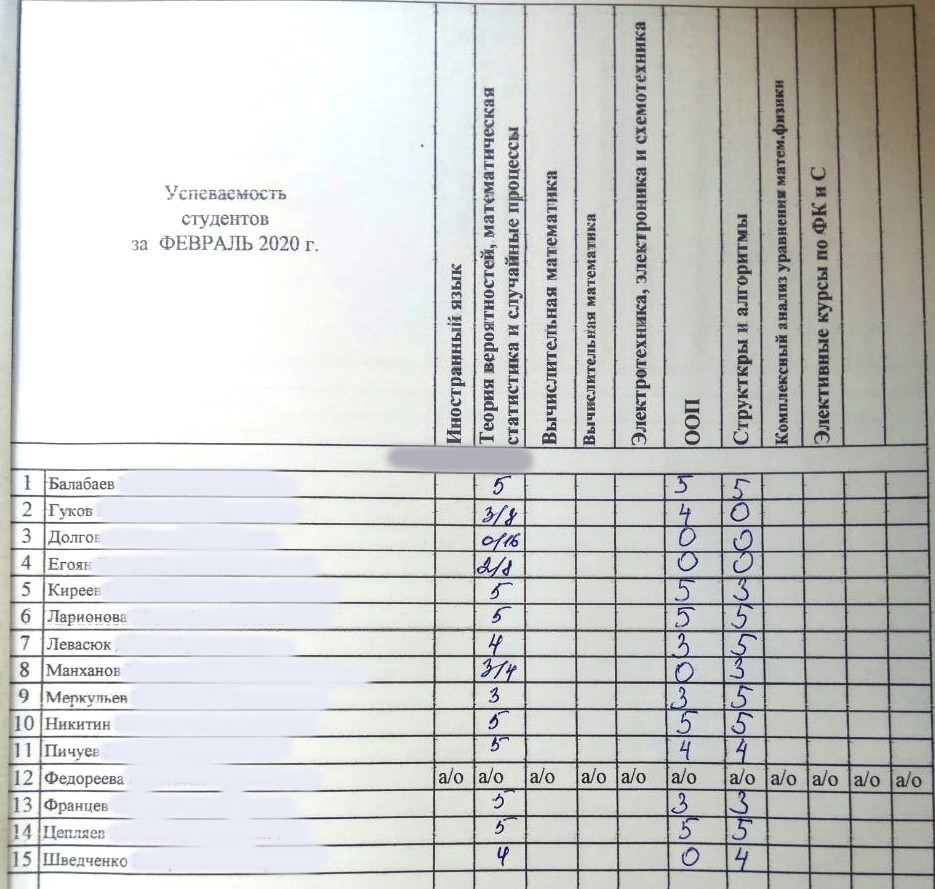 Успеваемость
студентов
за ФЕВРАЛЬ 2020 г.
Иностранный язык
Теория вероятностей, математическая
статистика и случайные процессы
Вычислительная математика
Вычислительная математика
Электротехника, электроника и схемотехника
ООП
Структкры и алгоритмы
Комплексный анализ уравнения матем.физики
Элективные курсы по ФК и С
1 Балабаев 5 5 5
2 Гуков 3/8 4 0
3 Долгов 0/16 0 0
4 Егоян 2/8 0 0
5 Киреев 5 5 3
6 Ларионова 5 5 5
7 Левасюк 4 3 5
8 Манханов 3/4 0 3
9 Меркульев 3 3 5
10 Никитин 5 5 5
11 Пичуев 5 4 4
12 Федореева а/о а/о а/о а/о а/о а/о а/о а/о а/о а/о а/о
13 Францев 5 3 3
14 Цепляев 5 5 5
15 Шведченко 4 0 4